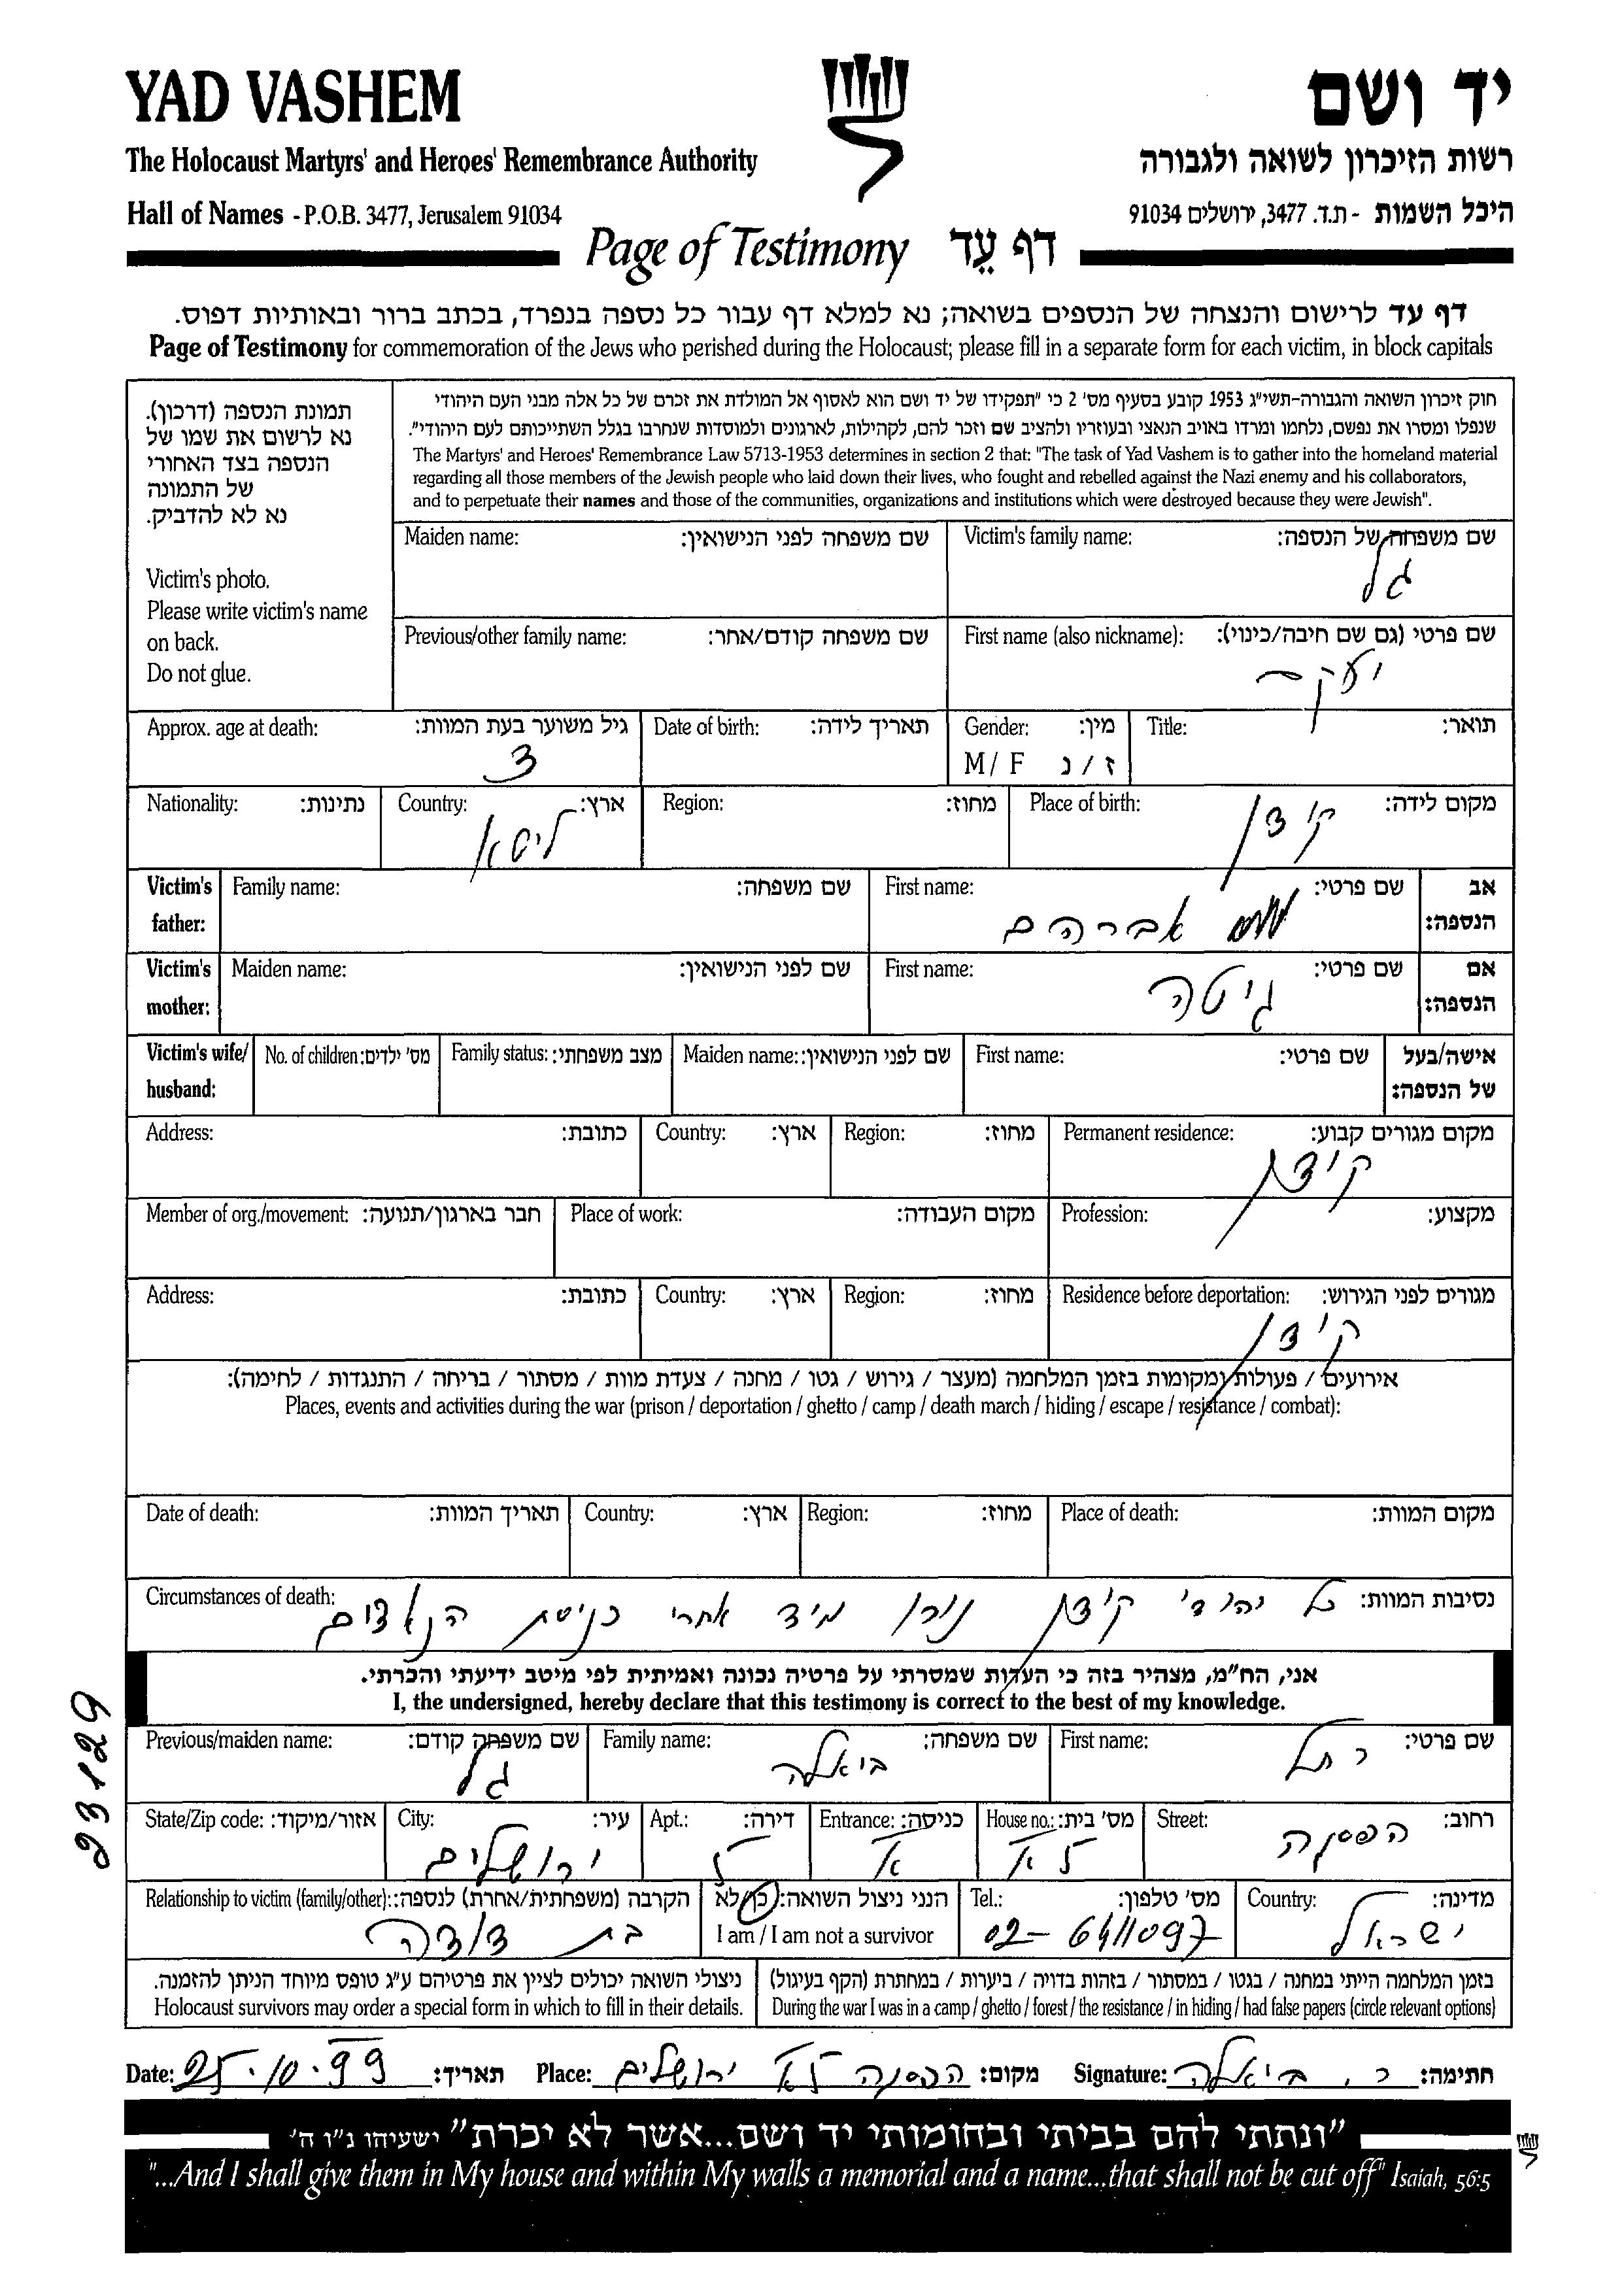 YAD VASHEM יד ושם
The Holocaust Martyrs' and Heroes' Remembrance Authority רשות הזיכרון לשואה ולגבורה
Hall of Names - P.O.B. 3477, Jerusalem 91034 היכל השמות - ת.ד. 3477, ירושלים 91034
Page of Testimony דף עֵד
דף עד לרישום והנצחה של הנספים בשואה; נא למלא דף עבור כל נספה בנפרד, בכתב ברור ובאותיות דפוס.
Page of Testimony for commemoration of the Jews who perished during the Holocaust; please fill in a separate form for each victim, in block capitals
תמונת הנספה (דרכון).
נא לרשום את שמו של
הנספה בצד האחורי
של התמונה
נא לא להדביק.
Victim's photo.
Please write victim's name
on back.
Do not glue.
חוק זיכרון השואה והגבורה-תשי"ג 1953 קובע בסעיף מס' 2 כי "תפקידו של יד ושם הוא לאסוף אל המולדת את זכרם של כל אלה מבני העם היהודי
שנפלו ומסרו את נפשם, נלחמו ומרדו באויב הנאצי ובעוזריו ולהציב שם וזכר להם, לקהילות, לארגונים ולמוסדות שנחרבו בגלל השתייכותם לעם היהודי".
The Martyrs' and Heroes' Remembrance Law 5713-1953 determines in section 2 that: "The task of Yad Vashem is to gather into the homeland material
regarding all those members of the Jewish people who laid down their lives, who fought and rebelled against the Nazi enemy and his collaborators,
and to perpetuate their names and those of the communities, organizations and institutions which were destroyed because they were Jewish".
Maiden name: שם משפחה לפני הנישואין: Victim's family name: שם משפחה של הנספה:
גל
Previous/other family name: שם משפחה קודם/אחר: First name (also nickname): שם פרטי (גם שם חיבה/כינוי):
יעקב
Approx. age at death: גיל משוער בעת המוות: Date of birth: תאריך לידה: Gender: מין: Title: תואר:
3 M/ F ז / נ
Nationality: נתינות: Country: ארץ: Region: מחוז: Place of birth: מקום לידה:
ליטא קידן
Victim's father: Family name: שם משפחה: First name: שם פרטי: אב הנספה:
אברהם
Victim's mother: Maiden name: שם לפני הנישואין: First name: שם פרטי: אם הנספה:
גיטה
Victim's wife/ husband: No. of children: מס' ילדים: Family status: מצב משפחתי: Maiden name: שם לפני הנישואין: First name: שם פרטי: אישה/בעל של הנספה:
Address: כתובת: Country: ארץ: Region: מחוז: Permanent residence: מקום מגורים קבוע:
קידן
Member of org./movement: חבר בארגון/תנועה: Place of work: מקום העבודה: Profession: מקצוע:
Address: כתובת: Country: ארץ: Region: מחוז: Residence before deportation: מגורים לפני הגירוש:
קידן
אירועים / פעולות ומקומות בזמן המלחמה (מעצר / גירוש / גטו / מחנה / צעדת מוות / מסתור / בריחה / התנגדות / לחימה):
Places, events and activities during the war (prison / deportation / ghetto / camp / death march / hiding / escape / resistance / combat):
Date of death: תאריך המוות: Country: ארץ: Region: מחוז: Place of death: מקום המוות:
Circumstances of death: נסיבות המוות:
כל יהודי קידן נורו מיד אחרי כניסת הנאצים
אני, הח"מ, מצהיר בזה כי העדות שמסרתי על פרטיה נכונה ואמיתית לפי מיטב ידיעתי והכרתי.
I, the undersigned, hereby declare that this testimony is correct to the best of my knowledge.
23129
Previous/maiden name: שם משפחה קודם: Family name: שם משפחה: First name: שם פרטי:
גל ביאלה רחל
State/Zip code: אזור/מיקוד: City: עיר: Apt.: דירה: Entrance: כניסה: House no.: מס' בית: Street: רחוב:
ירושלים 5 א 5א הפסגה
Relationship to victim (family/other): הקרבה (משפחתית/אחרת) לנספה: הנני ניצול השואה: כן/לא Tel.: מס' טלפון: Country: מדינה:
בת דודה I am / I am not a survivor 02-6411097 ישראל
ניצולי השואה יכולים לציין את פרטיהם ע"ג טופס מיוחד הניתן להזמנה. בזמן המלחמה הייתי במחנה / בגטו / במסתור / בזהות בדויה / ביערות / במחתרת (הקף בעיגול)
Holocaust survivors may order a special form in which to fill in their details. During the war I was in a camp / ghetto / forest / the resistance / in hiding / had false papers (circle relevant options)
Date: 25.10.99 תאריך: Place: הפסגה 5א ירושלים מקום: Signature: ר. ביאלה חתימה:
"ונתתי להם בביתי ובחומותי יד ושם...אשר לא יכרת" ישעיהו נ"ו ה'
"...And I shall give them in My house and within My walls a memorial and a name...that shall not be cut off" Isaiah, 56:5